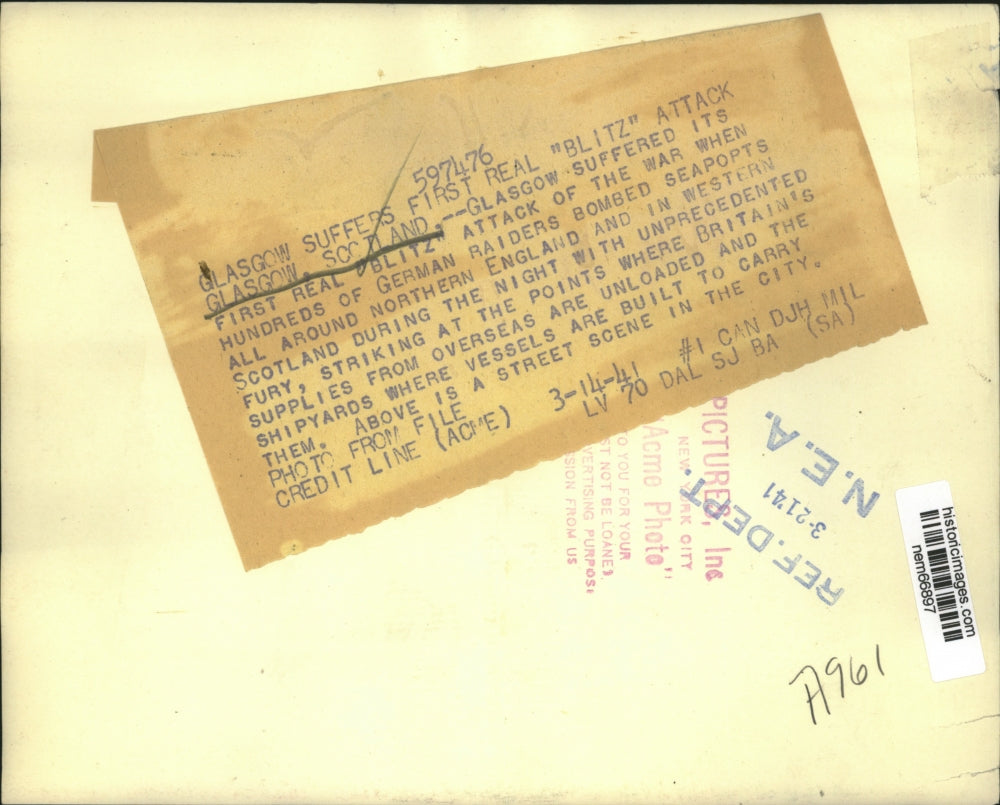 597476
GLASGOW SUFFERS FIRST REAL "BLITZ" ATTACK
GLASGOW, SCOTLAND.--GLASGOW SUFFERED ITS
FIRST REAL "BLITZ" ATTACK OF THE WAR WHEN
HUNDREDS OF GERMAN RAIDERS BOMBED SEAPOPTS
ALL AROUND NORTHERN ENGLAND AND IN WESTERN
SCOTLAND DURING THE NIGHT WITH UNPRECEDENTED
FURY, STRIKING AT THE POINTS WHERE BRITAIN'S
SUPPLIES FROM OVERSEAS ARE UNLOADED AND THE
SHIPYARDS WHERE VESSELS ARE BUILT TO CARRY
THEM. ABOVE IS A STREET SCENE IN THE CITY.
PHOTO FROM FILE
CREDIT LINE (ACME) 3-14-41 #1 CAN DJH MIL
LV 70 DAL SJ BA (SA)
PICTURES, Inc
NEW YORK CITY
"Acme Photo"
TO YOU FOR YOUR
ST NOT BE LOANED
VERTISING PURPOSE
SSION FROM US
N.E.A.
3-21'41
REF. DEPT.
historicimages.com
nem66897
A961